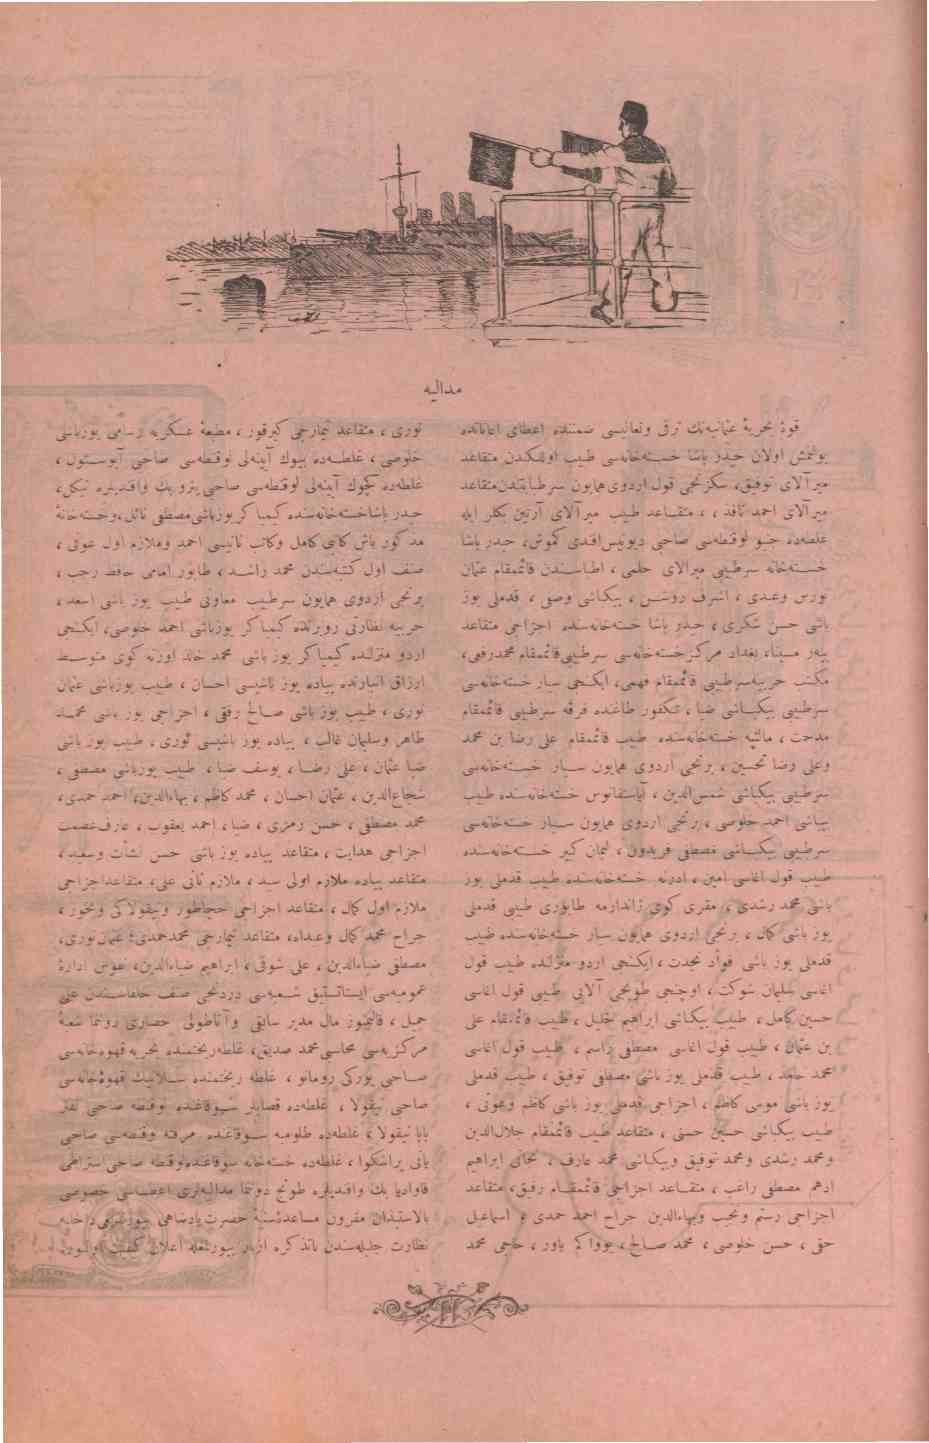 مدالیه
قوۀ بحریۀ عثمانیه‌نك ترقی وتعالیسی ضمننده اعطای اعاناتده
بولنمش اولان حیدر پاشا خسته‌خانه‌سی طبیب اوللكندن متقاعد
میرآلای توفیق، سكزنجی قول اردوی همایون سرطبابتندن متقاعد
میرآلای احمد نافذ، متقاعد طبیب میرآلای آرتین بكلر ایله
غلطه‌ده جنیو لوقنطه‌سی صاحبی دیونیس افندی كموش، حیدر پاشا
خسته‌خانه سرطبیبی میرآلای حلمی، اطباسندن قائممقام عثمان
نورس وعدی، اشرف روشن، بیكباشی وصفی، قدملی یوز
باشی حسن شكری، حیدر پاشا خسته‌خانه‌سنده اجزاجی متقاعد
بغداد مركز خسته‌خانه‌سی سرطبیبی قائممقام محمدرفعی،
مكتب حربیه سرطبیبی قائممقام فهمی، ایكنجی سیار خسته‌خانه‌سی
سرطبیبی بیكباشی ضیا، تكفور طاغنده فرقه سرطبیبی قائممقام
مدحت، مالتپه خسته‌خانه‌سنده طبیب قائممقام علی رضا بن محمد
وعلی رضا تحسین، برنجی اردوی همایون سیار خسته‌خانه‌سی
سرطبیبی بیكباشی شمس‌الدین، آیاستفانوس خسته‌خانه‌سنده طبیب
بیكباشی احمد خلوصی، برنجی اردوی همایون سیار خسته‌خانه‌سی
سرطبیبی بیكباشی مصطفی فریدون، لیمان كبیر خسته‌خانه‌سنده
طبیب قول اغاسی امین، ادرنه خسته‌خانه‌سنده طبیب قدملی یوز
باشی محمد رشدی، مقری كوی ژاندارمه طابوری طبیبی قدملی
یوز باشی كمال، برنجی اردوی همایون سیار خسته‌خانه‌سنده طبیب
قدملی یوز باشی فؤاد نجدت، ایكنجی اردو منزلنده طبیب قول
اغاسی سلیمان شوكت، اوچنجی طوپجی آلایی طبیبی قول اغاسی
حسین كامل، طبیب بیكباشی ابراهیم خلیل، طبیب قائممقام علی
بن عثمان، طبیب قول اغاسی مصطفی راسم، طبیب قول اغاسی
محمد حامد، طبیب قدملی یوز باشی مصطفی توفیق، طبیب قدملی
یوز باشی موسی كاظم، اجزاجی قدملی یوز باشی كاظم وعونی،
طبیب بیكباشی حسین حسنی، متقاعد طبیب قائممقام جلال‌الدین
ومحمد رشدی ومحمد توفیق وبیكباشی محمد عارف، نجاتی ابراهیم
ادهم مصطفی راغب، متقاعد اجزاجی قائممقام رفیق، متقاعد
اجزاجی رستم ونجیب وبهاءالدین جراح احمد حمدی، اسماعیل
حقی، حسن خلوصی، محمد صالح، یاور، حاجی محمد
نوری، متقاعد تیمارجی كیرقور، مطبعۀ عسكریه رسامی یوزباشی
خلوصی، غلطه‌ده بیوك آینه‌لی لوقنطه‌سی صاحبی آپوستول،
غلطه‌ده كوچوك آینه‌لی لوقنطه‌سی صاحبی پترو بك وافندیلره نیكل،
حیدر پاشا خسته‌خانه‌سنده كیمیاكر یوزباشی مصطفی نائل، وخسته‌خانۀ
مذكور باش كاتبی كامل وكاتب ثانیسی احمد وملازم اول عونی،
صنف اول كتبه‌سندن محمد راشد، طابور امامی حافظ رجب،
برنجی اردوی همایون سرطبیب معاونی طبیب یوز باشی اسعد،
حربیه نظارتی كیمیاكر یوزباشی احمد خلوصی، ایكنجی
اردو منزلنده كیمیاكر یوز باشی محمد خالد اوزنه كوی متوسط
ارزاق انبارنده پیاده یوز باشیسی احسان، طبیب یوزباشی عثمان
نوری، طبیب یوز باشی صالح رفقی، اجزاجی یوز باشی محمد
طاهر وسلیمان غالب، پیاده یوز باشیسی نوری، طبیب یوز باشی
ضیا عثمان، علی رضا، یوسف ضیا، طبیب یوزباشی مصطفی،
شجاع‌الدین، عثمان احسان، محمد كاظم، بهاءالدین، احمد حمدی،
محمد مصطفی، حسن رمزی، ضیا، احمد یعقوب، عارف عصمت
اجزاجی هدایت، متقاعد پیاده یوز باشی حسن نشأت وسعید،
متقاعد پیاده ملازم اولی سید، ملازم ثانی علی، متقاعد اجزاجی
ملازم اول كمال، متقاعد اجزاجی ونیقولاكی
جراح محمد كمال وعبداه، متقاعد تیمارجی محمد حمدی، عثمان نوری،
مصطفی ضیاءالدین، علی شوقی، ابراهیم ضیاءالدین، نفوس ادارۀ
عمومیه‌سی ایستاتستیق شعبه‌سی دردنجی صنف خلفاسندن علی
جمیل، مال مدیر سابقی وآناطولی حصاری دوننما شعبۀ
مركزیه‌سی محاسبی محمد صدیق، غلطه ریختیمنده بحریه قهوه‌خانه‌سی
صاحبی یوركی رومانو، غلطه ریختیمنده سلانیك قهوه‌خانه‌سی
صاحبی نیقولا، غلطه‌ده قصابلر سوقاغنده لوقنطه صاحبی
بابا نیقولا، غلطه‌ده طلومبه سوقاغنده لوقنطه‌سی صاحبی
یانی پراشكوا، غلطه‌ده خسته‌خانه سوقاغنده لوقنطه صاحبی استراطی
بك وافندیلره طونج دوننما مدالیه‌لری اعطاسی خصوصی
بالاستیذان مقرون مساعدۀ سنیۀ حضرت پادشاهی بیورلدیغی داخلیه
نظارت جلیله‌سندن باتذكره ازبار بیورلمغله اعلان كیفیت اولنور.